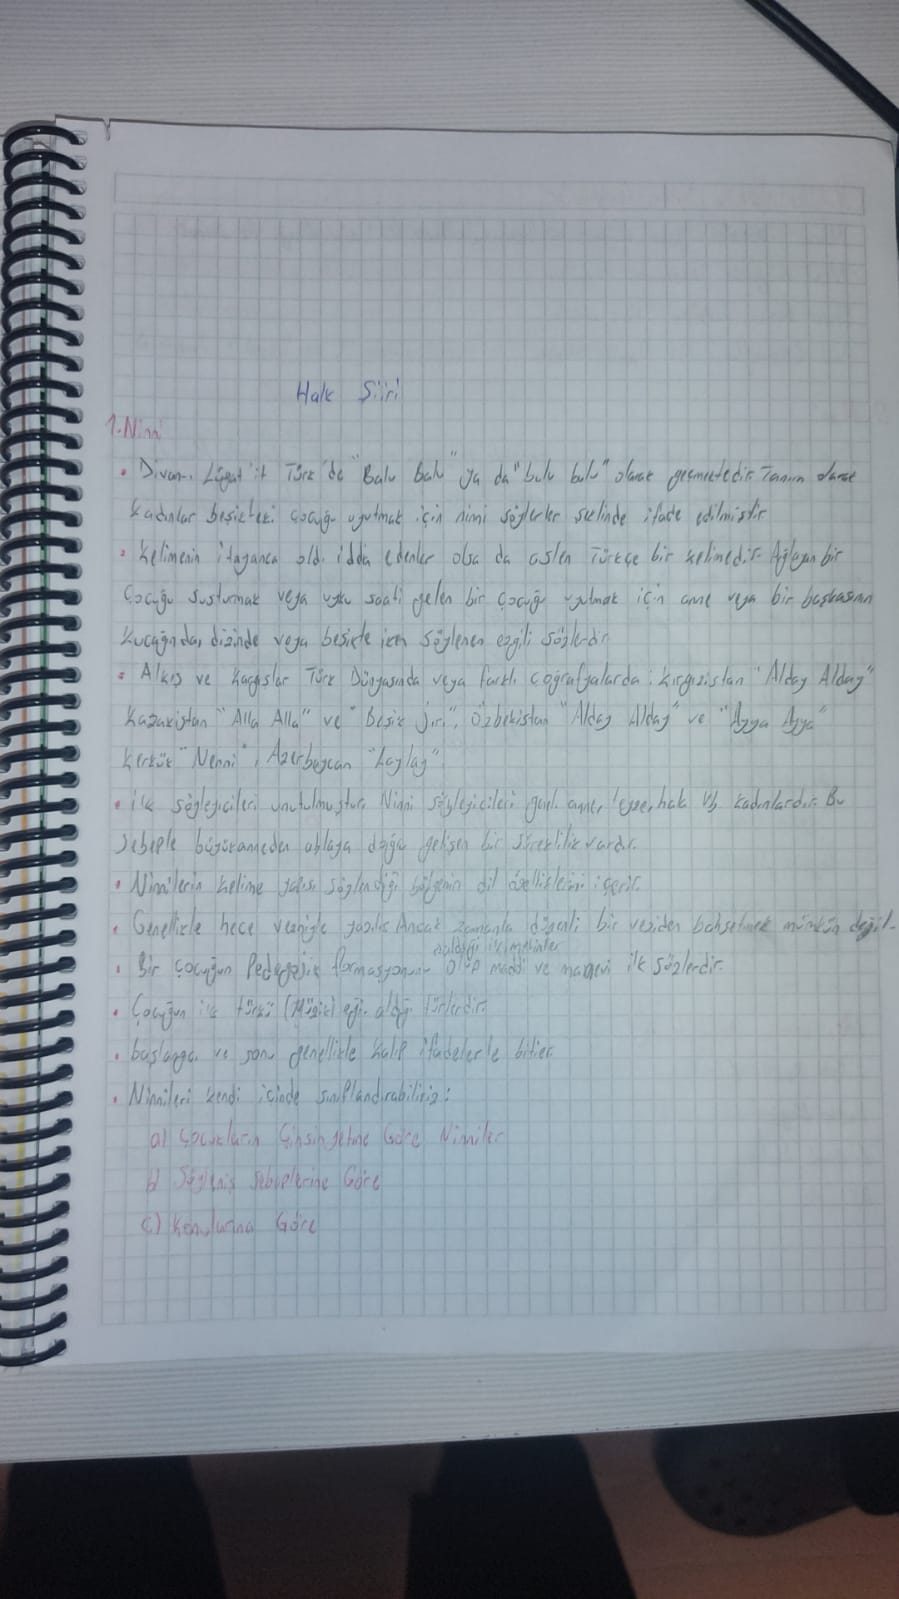 Halk Şiiri
1.Ninni
• Divan-ı Lügat'it Türk'de "Balu Balu" ya da "bulu bulu" olarak geçmektedir. Tanım olarak
kadınlar beşikteki çocuğu uyutmak için ninni söylerler şeklinde ifade edilmiştir
• Kelimenin italyanca old. iddia edenler olsa da aslen Türkçe bir kelimedir. Ağlayan bir
çocuğu susturmak veya uyku saati gelen bir çocuğu uyutmak için anne veya bir başkasının
kucağında, dizinde veya beşikte iken söylenen ezgili sözlerdir
• Alkış ve kargışlar Türk Dünyasında veya farklı coğrafyalarda: Kırgızistan "Alday Alday"
Kazakistan "Alla Alla" ve "Beşik Jırı", Özbekistan "Alday Alday" ve "Ayya Ayya"
Kerkük "Nenni", Azerbaycan "Laylay".
• ilk söyleyicileri unutulmuştur. Ninni söyleyicileri anne, teyze, hala vb kadınlardır. Bu
sebeple büyükanneden ablaya doğru gelişen bir süreklilik vardır.
• Ninnilerin kelime söylendiği bölgenin dil özelliklerini içerir.
• Genellikle hece vezniyle yazılır. Ancak zamanla düzenli bir veziden bahsetmek mümkün değil.
• Bir çocuğun Pedagojik formasyonunu açıldığı ilk metinler olup maddi ve manevi ilk sözlerdir.
• Çocuğun ilk türkü (Müzik) eği. aldığı türlerdir.
• başlangıç ve sonu genellikle kalıp ifadelerle biter
• Ninnileri kendi içinde sınıflandırabiliriz:
a) Çocukların Cinsiyetine Göre Ninniler
b) Söyleniş Sebeplerine Göre
c) Konularına Göre